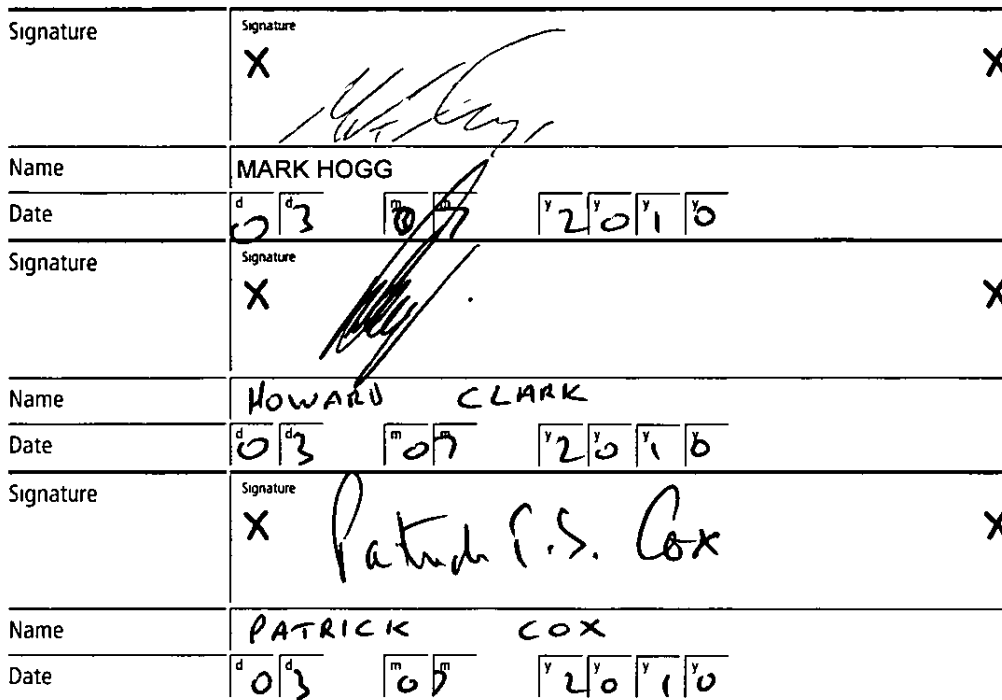 Signature Signature
X X
Name MARK HOGG
Date d 0 d 3 m 0 m 7 y 2 y 0 y 1 y 0
Signature Signature
X X
Name HOWARD CLARK
Date d 0 d 3 m 0 m 7 y 2 y 0 y 1 y 0
Signature Signature
X Patrick P.S. Cox X
Name PATRICK COX
Date d 0 d 3 m 0 m 7 y 2 y 0 y 1 y 0